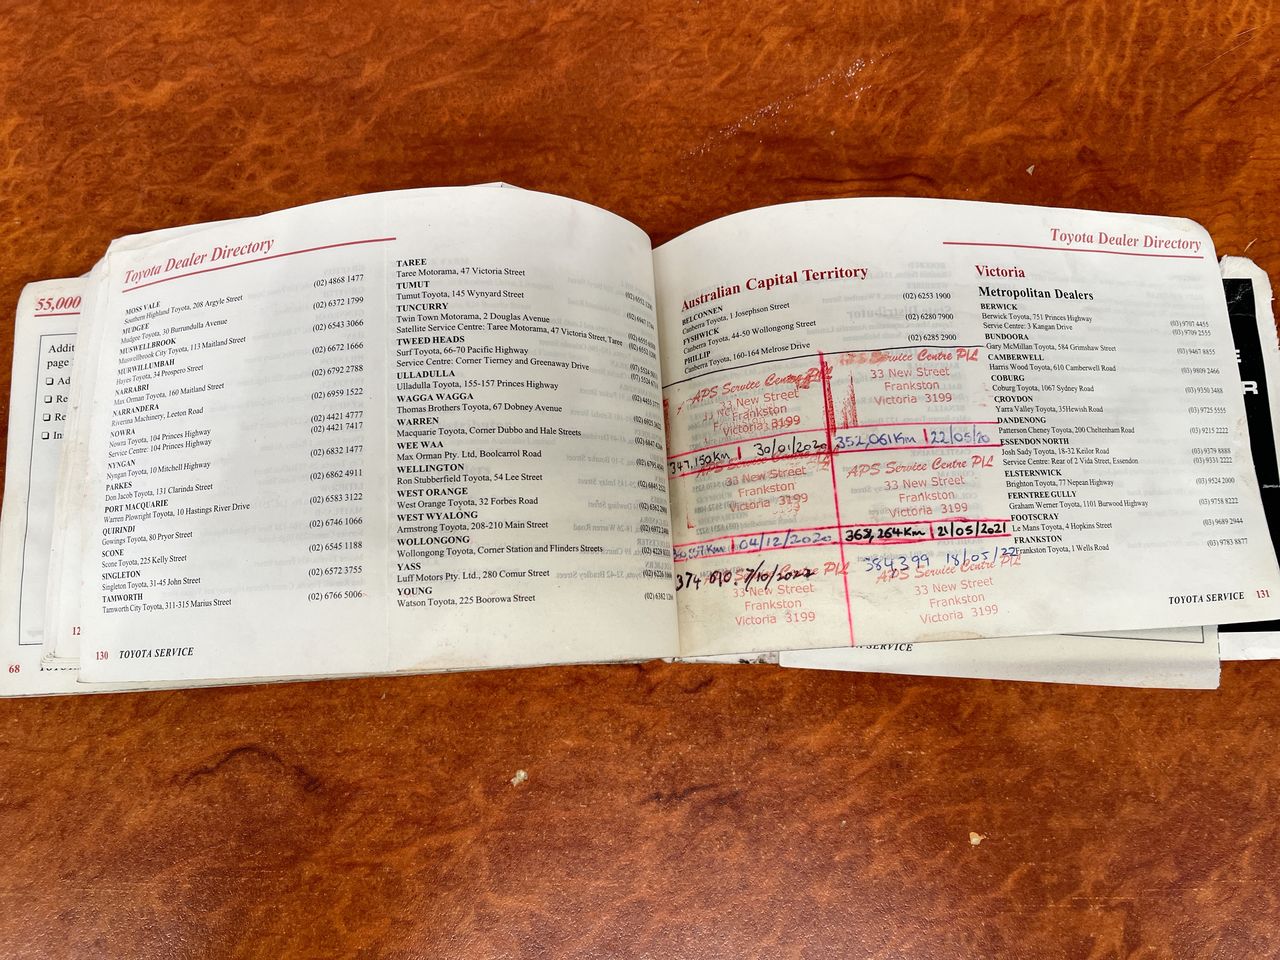 55,000
Addit
page
Ad
Re
Re
Ins
12
68
Toyota Dealer Directory
MOSS VALE
Southern Highland Toyota, 208 Argyle Street
(02) 4868 1477
MUDGEE
Mudgee Toyota, 30 Burrundulla Avenue
(02) 6372 1799
MUSWELLBROOK
Muswellbrook City Toyota, 113 Maitland Street
(02) 6543 3066
MURWILLUMBAH
Hayes Toyota, 34 Prospero Street
(02) 6672 1666
NARRABRI
Max Orman Toyota, 160 Maitland Street
(02) 6792 2788
NARRANDERA
Riverina Machinery, Leeton Road
(02) 6959 1522
NOWRA
Nowra Toyota, 104 Princes Highway
(02) 4421 4777
Service Centre: 104 Princes Highway
(02) 4421 7417
NYNGAN
Nyngan Toyota, 10 Mitchell Highway
(02) 6832 1477
PARKES
Don Jacob Toyota, 131 Clarinda Street
(02) 6862 4911
PORT MACQUARIE
Warren Plowright Toyota, 10 Hastings River Drive
(02) 6583 3122
QUIRINDI
Gowings Toyota, 80 Pryor Street
(02) 6746 1066
SCONE
Scone Toyota, 225 Kelly Street
(02) 6545 1188
SINGLETON
Singleton Toyota, 31-45 John Street
(02) 6572 3755
TAMWORTH
Tamworth City Toyota, 311-315 Marius Street
(02) 6766 5006
130 TOYOTA SERVICE
TAREE
Taree Motorama, 47 Victoria Street
TUMUT
Tumut Toyota, 145 Wynyard Street
TUNCURRY
Twin Town Motorama, 2 Douglas Avenue
Satellite Service Centre: Taree Motorama, 47 Victoria Street, Taree
TWEED HEADS
Surf Toyota, 66-70 Pacific Highway
Service Centre: Corner Tierney and Greenaway Drive
ULLADULLA
Ulladulla Toyota, 155-157 Princes Highway
WAGGA WAGGA
Thomas Brothers Toyota, 67 Dobney Avenue
WARREN
Macquarie Toyota, Corner Dubbo and Hale Streets
WEE WAA
Max Orman Pty. Ltd, Boolcarrol Road
WELLINGTON
Ron Stubberfield Toyota, 54 Lee Street
WEST ORANGE
West Orange Toyota, 32 Forbes Road
WEST WYALONG
Armstrong Toyota, 208-210 Main Street
WOLLONGONG
Wollongong Toyota, Corner Station and Flinders Streets
YASS
Luff Motors Pty. Ltd., 280 Comur Street
YOUNG
Watson Toyota, 225 Boorowa Street
Australian Capital Territory
BELCONNEN
Canberra Toyota, 1 Josephson Street
(02) 6253 1900
FYSHWICK
Canberra Toyota, 44-50 Wollongong Street
(02) 6280 7900
PHILLIP
Canberra Toyota, 160-164 Melrose Drive
(02) 6285 2900
APS Service Centre P/L
33 New Street
Frankston
Victoria 3199
347,150km 30/01/2020
APS Service Centre P/L
33 New Street
Frankston
Victoria 3199
352,061Km 22/05/20
APS Service Centre P/L
33 New Street
Frankston
Victoria 3199
Km 04/12/2020
APS Service Centre P/L
33 New Street
Frankston
Victoria 3199
363,264Km 21/05/2021
374 010. 7/10/2022
APS Service Centre P/L
33 New Street
Frankston
Victoria 3199
384399 18/05/22
APS Service Centre P/L
33 New Street
Frankston
Victoria 3199
Toyota Dealer Directory
Victoria
Metropolitan Dealers
BERWICK
Berwick Toyota, 751 Princes Highway
(03) 9707 4455
Servic Centre: 3 Kangan Drive
(03) 9709 2555
BUNDOORA
Gary McMillan Toyota, 584 Grimshaw Street
(03) 9467 8855
CAMBERWELL
Harris Wood Toyota, 610 Camberwell Road
(03) 9809 2466
COBURG
Coburg Toyota, 1067 Sydney Road
(03) 9350 3488
CROYDON
Yarra Valley Toyota, 35Hewish Road
(03) 9725 5555
DANDENONG
Patterson Cheney Toyota, 200 Cheltenham Road
(03) 9215 2222
ESSENDON NORTH
Josh Sady Toyota, 18-32 Keilor Road
(03) 9379 8888
Service Centre: Rear of 2 Vida Street, Essendon
(03) 9331 2222
ELSTERNWICK
Brighton Toyota, 77 Nepean Highway
(03) 9524 2000
FERNTREE GULLY
Graham Werner Toyota, 1101 Burwood Highway
(03) 9758 8222
FOOTSCRAY
Le Mans Toyota, 4 Hopkins Street
(03) 9689 2944
FRANKSTON
Frankston Toyota, 1 Wells Road
(03) 9783 8877
TOYOTA SERVICE 131
E
R
SERVICE